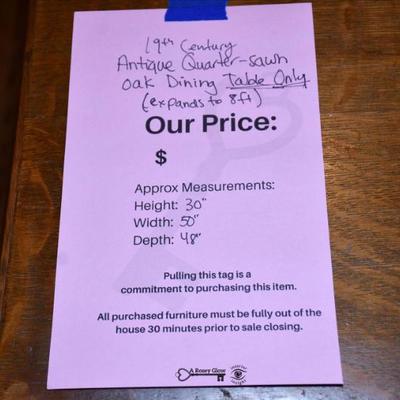 19th Century
Antique Quarter-sawn
Oak Dining Table Only
(expands to 8ft)
Our Price:
$
Approx Measurements:
Height: 30"
Width: 50"
Depth: 48"
Pulling this tag is a
commitment to purchasing this item.
All purchased furniture must be fully out of the
house 30 minutes prior to sale closing.
A Rosey Glow